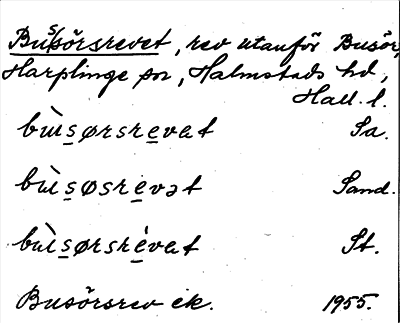 Bussörsrevet, rev utanför Busör,
Harplinge sn, Halmstads hd,
Hall. l.
bùsørsrevat Sa.
bùsøsrevət Sand.
bùsørsrèvat St.
Busörsrev ek. 1955.